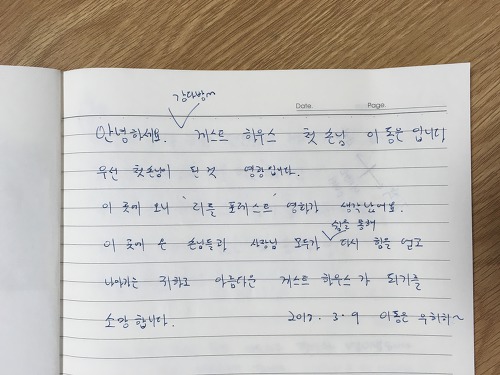 강다방
Date. Page.
안녕하세요. 게스트 하우스 첫 손님 이동은 입니다
우선 첫손님이 된 것 영광입니다.
이 곳에 오니 '리틀 포레스트' 영화가 생각났어요.
쉼을 통해
이 곳에 온 손님들과 사장님 모두가 다시 힘을 얻고
나아가는 귀하고 아름다운 게스트 하우스가 되기를
소망합니다. 2017. 3. 9 이동은 우히히~